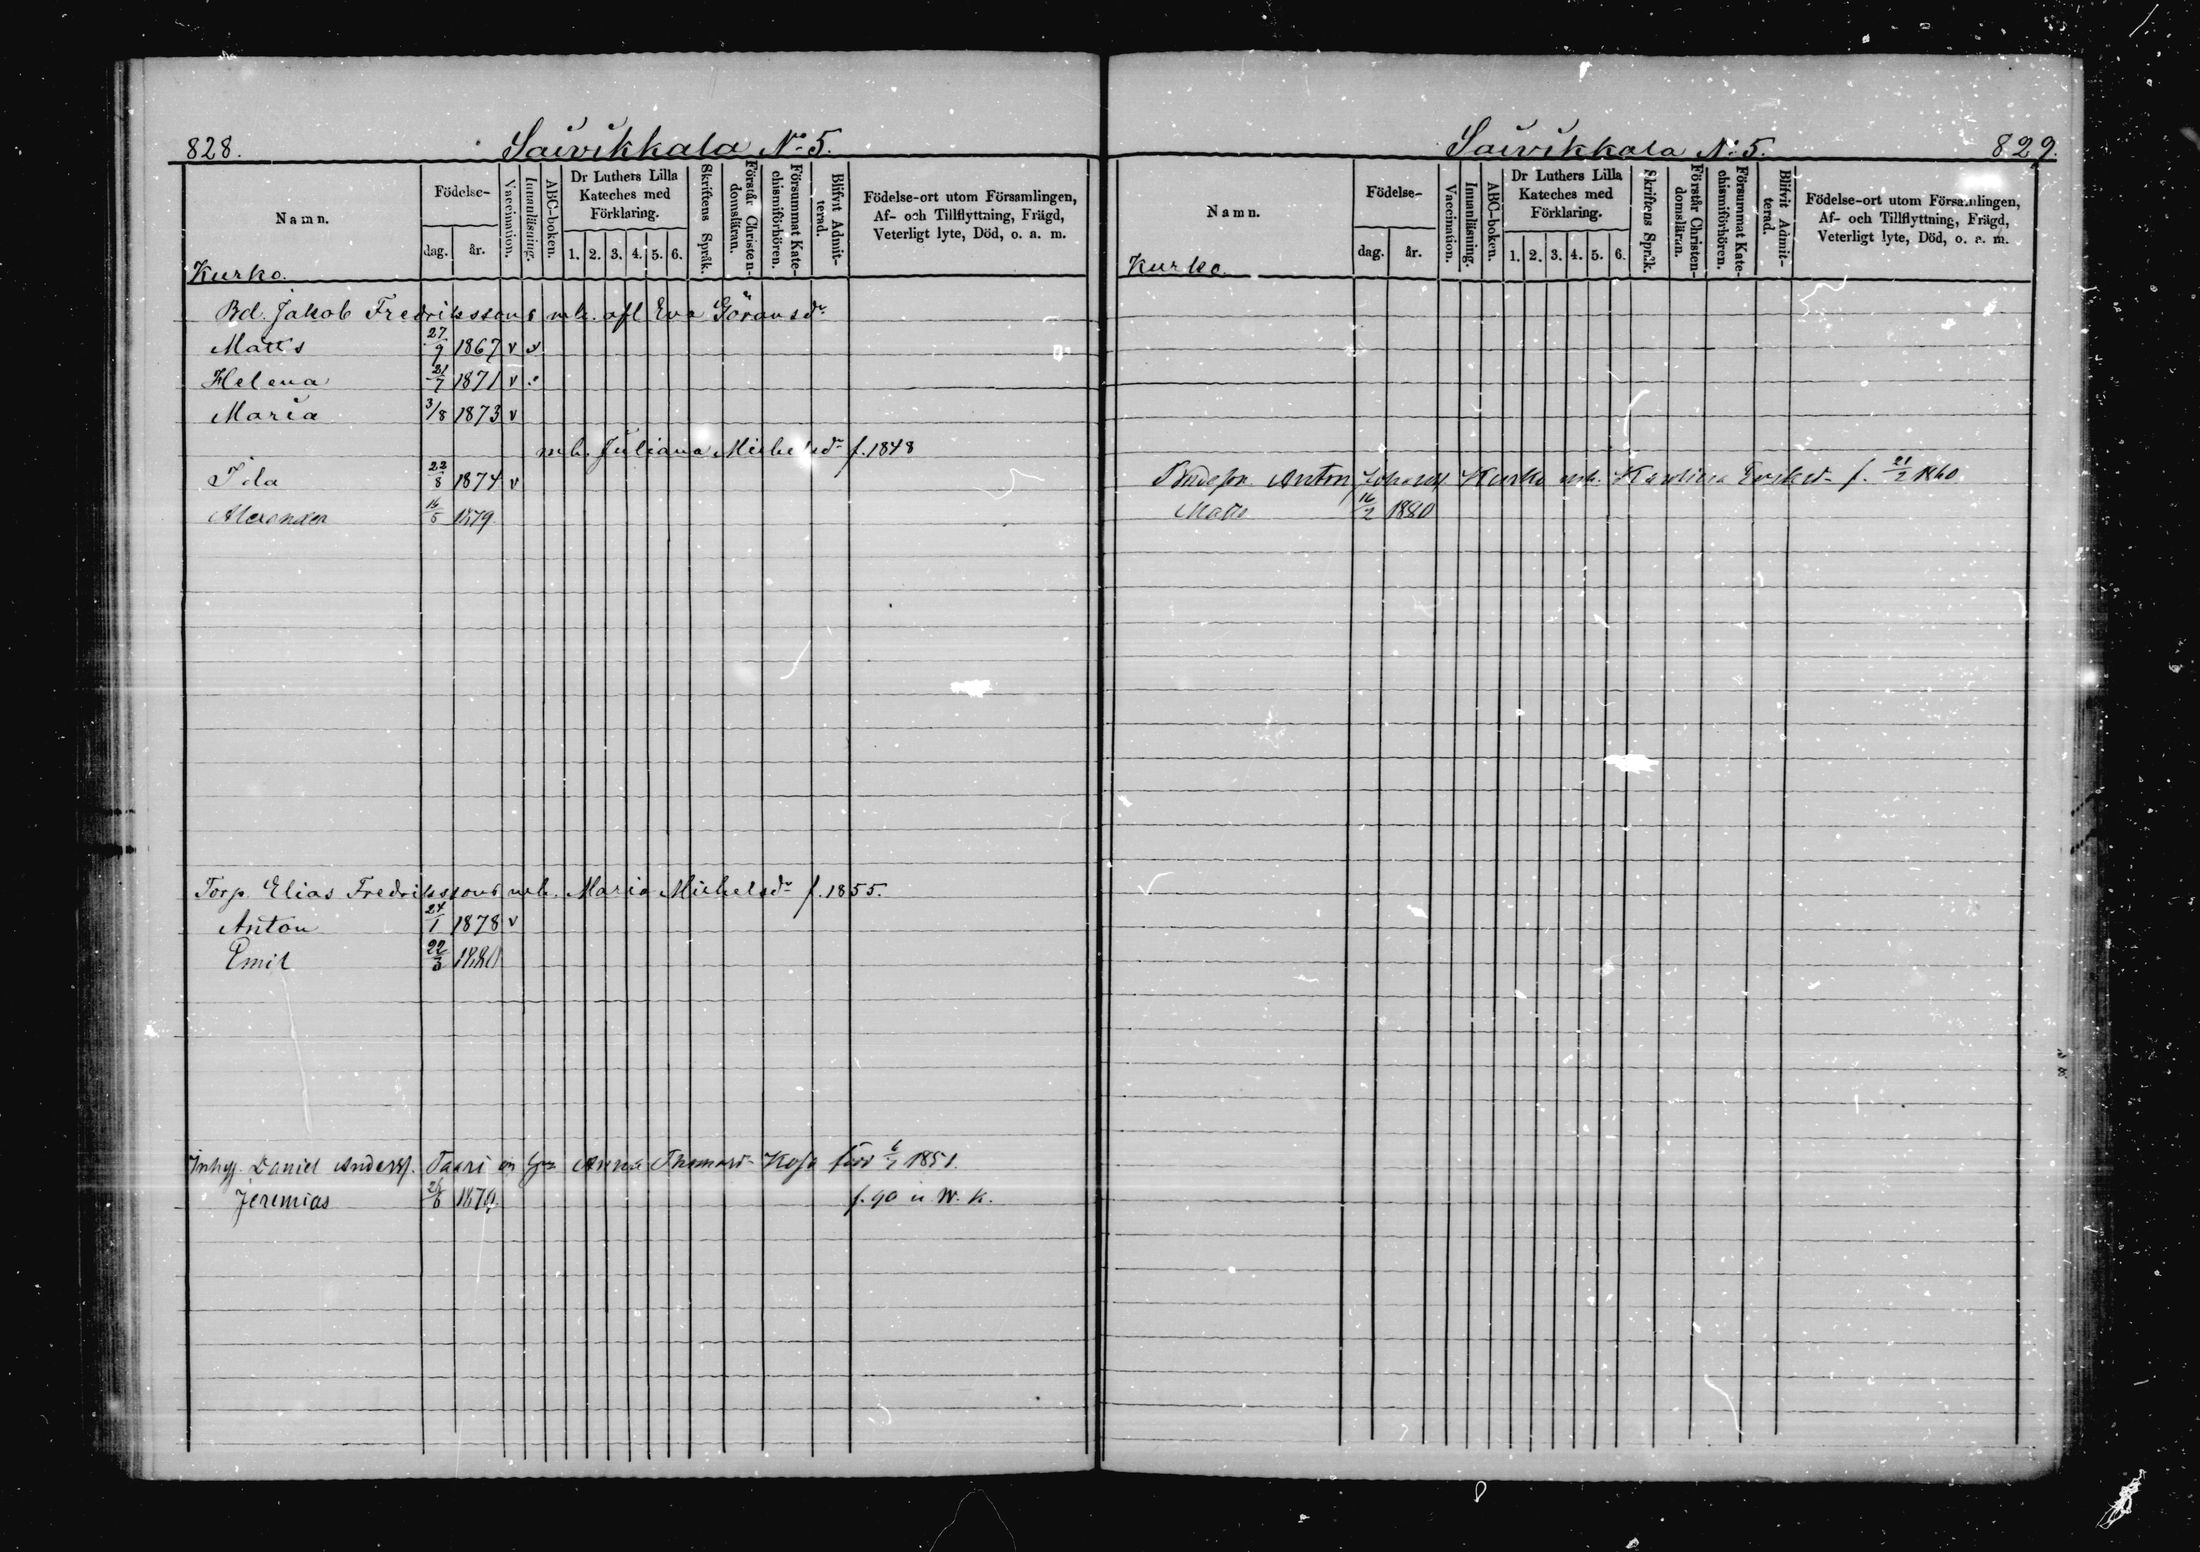 828. Saivikkala No 5.
Namn. Födelse- dag. år. Vaccination. Innanläsning. ABC-boken. Dr Luthers Lilla Kateches med Förklaring. 1. 2. 3. 4. 5. 6. Skriftens Språk. Förstår Christendomsläran. Försummat Katechismiförhören. Blifvit Admitterad. Födelse-ort utom Församlingen, Af- och Tillflyttning, Frägd, Veterligt lyte, Död, o. a. m.
Kurko.
Bd. Jakob Fredrikssons mh. afl Eva Göransdr
Matts 27/9 1867 v v
Helena 21/7 1871 v
Maria 3/8 1873 v
mh. Juliana Michelsdr f. 1848
Ida 22/8 1874 v
Alexander 16/5 1879
Torp. Elias Fredrikssons mh. Maria Michelsdr f. 1855.
Anton 24/1 1878 v
Emil 22/3 1880
Inhys. Daniel Anderss. Taari Anna född 1851.
Jeremias 1879 f. 90 u W. K.
Saivikkala No 5. 829.
Namn. Födelse- dag. år. Vaccination. Innanläsning. ABC-boken. Dr Luthers Lilla Kateches med Förklaring. 1. 2. 3. 4. 5. 6. Skriftens Språk. Förstår Christendomsläran. Försummat Katechismiförhören. Blifvit Admitterad. Födelse-ort utom Församlingen, Af- och Tillflyttning, Frägd, Veterligt lyte, Död, o. a. m.
Kurko.
Bondeson Anton Kurko mh. Karolina Eriksd. f. 21/2 1860
Matts 16/2 1880